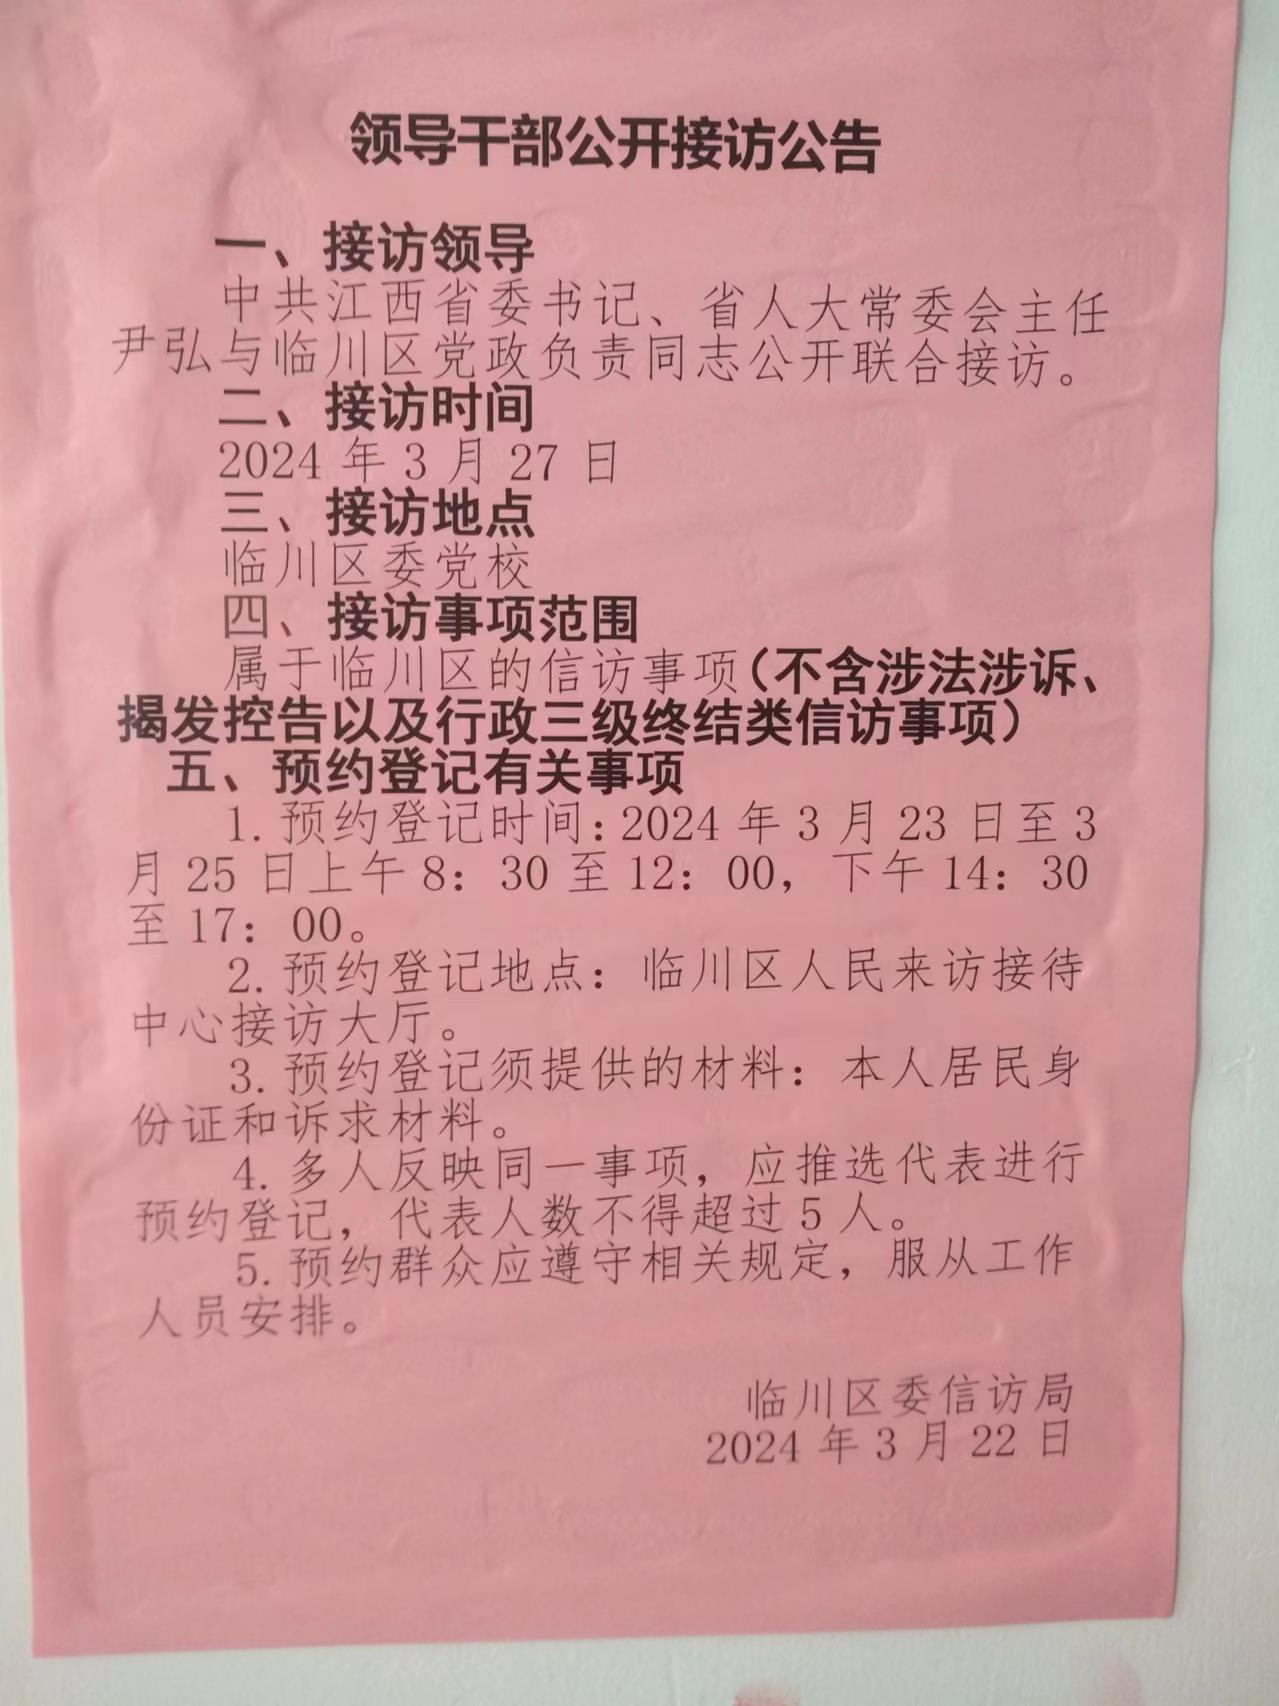 领导干部公开接访公告
一、接访领导
中共江西省委书记、省人大常委会主任
尹弘与临川区党政负责同志公开联合接访。
二、接访时间
2024 年 3 月 27 日
三、接访地点
临川区委党校
四、接访事项范围
属于临川区的信访事项(不含涉法涉诉、
揭发控告以及行政三级终结类信访事项)
五、预约登记有关事项
1. 预约登记时间:2024 年 3 月 23 日至 3
月 25 日上午 8：30 至 12：00，下午 14：30
至 17：00。
2. 预约登记地点：临川区人民来访接待
中心接访大厅。
3. 预约登记须提供的材料：本人居民身
份证和诉求材料。
4. 多人反映同一事项，应推选代表进行
预约登记，代表人数不得超过 5 人。
5. 预约群众应遵守相关规定，服从工作
人员安排。
临川区委信访局
2024 年 3 月 22 日